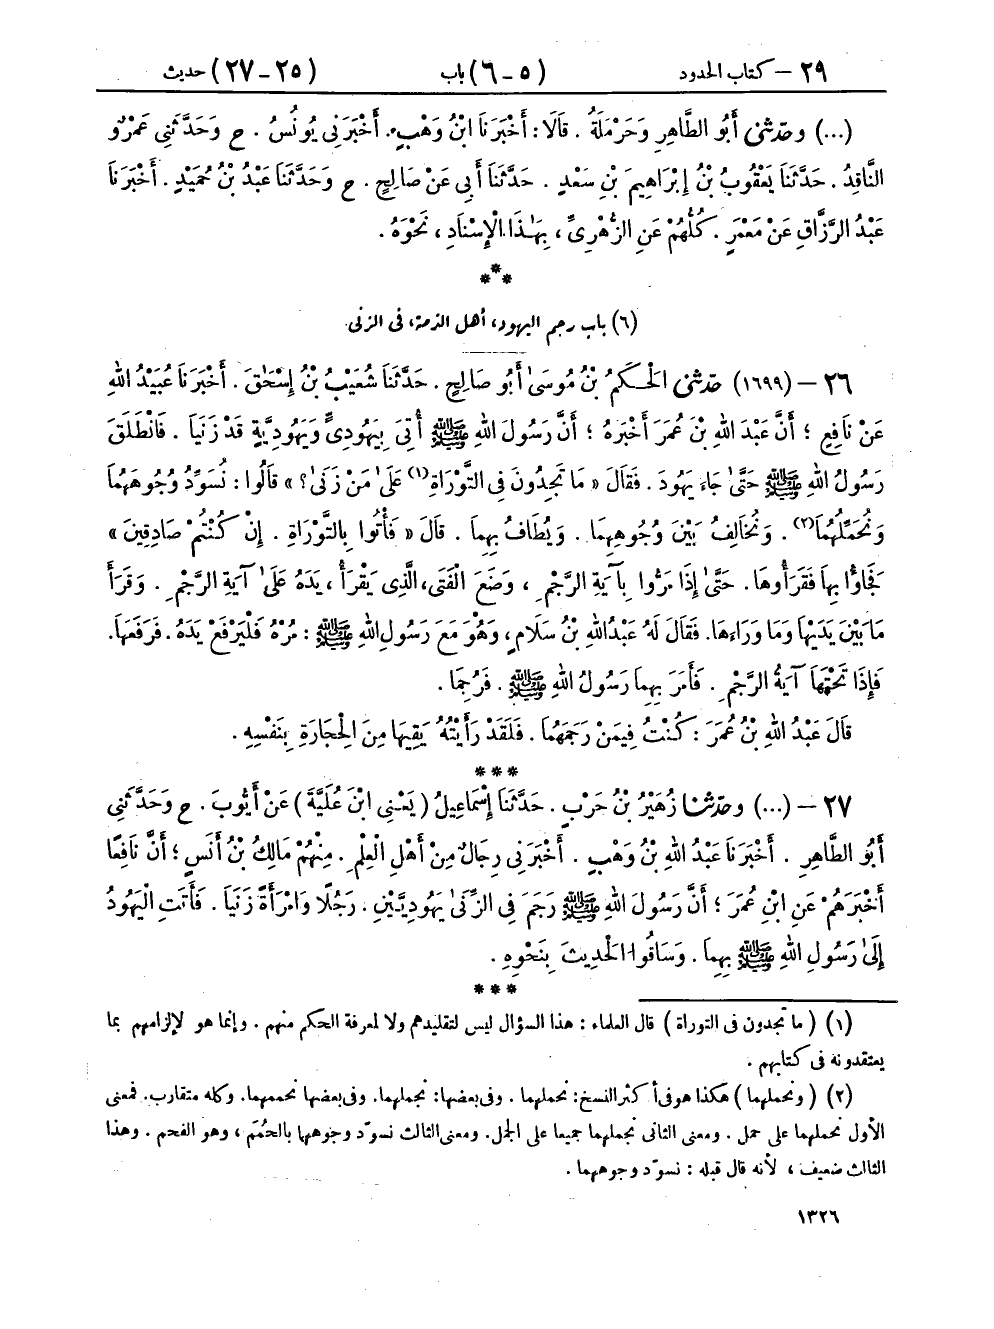 ٢٩ – كتاب الحدود (٥ – ٦) باب (٢٥ – ٢٧) حديث
(...) وحَدَّثَنِي أَبُو الطَّاهِرِ وَحَرْمَلَةُ . قَالَا : أَخْبَرَنَا ابْنُ وَهْبٍ . أَخْبَرَنِي يُونُسُ . ح وَحَدَّثَنِي عَمْرٌو
النَّاقِدُ . حَدَّثَنَا يَعْقُوبُ بْنُ إِبْرَاهِيمَ بْنِ سَعْدٍ . حَدَّثَنَا أَبِي عَنْ صَالِحٍ . ح وَحَدَّثَنَا عَبْدُ بْنُ حُمَيْدٍ . أَخْبَرَنَا
عَبْدُ الرَّزَّاقِ عَنْ مَعْمَرٍ . كُلُّهُمْ عَنِ الزُّهْرِىِّ ، بِهَٰذَا الْإِسْنَادِ ، نَحْوَهُ .
***
(٦) باب رجم اليهود، أهل الذمة، فى الزنى
٢٦ – (١٦٩٩) حَدَّثَنِي الْحَكَمُ بْنُ مُوسَىٰ أَبُو صَالِحٍ . حَدَّثَنَا شُعَيْبُ بْنُ إِسْحَٰقَ . أَخْبَرَنَا عُبَيْدُ اللهِ
عَنْ نَافِعٍ ؛ أَنَّ عَبْدَ اللهِ بْنَ عُمَرَ أَخْبَرَهُ ؛ أَنَّ رَسُولَ اللهِ ﷺ أُتِىَ بِيَهُودِىٍّ وَيَهُودِيَّةٍ قَدْ زَنَيَا . فَانْطَلَقَ
رَسُولُ اللهِ ﷺ حَتَّىٰ جَاءَ يَهُودَ . فَقَالَ « مَا تَجِدُونَ فِى التَّوْرَاةِ(١) عَلَىٰ مَنْ زَنَىٰ؟ » قَالُوا : نُسَوِّدُ وُجُوهَهُمَا
وَنُحَمِّلُهُمَا(٢) . وَنُخَالِفُ بَيْنَ وُجُوهِهِمَا . وَيُطَافُ بِهِمَا . قَالَ « فَأْتُوا بِالتَّوْرَاةِ . إِنْ كُنْتُمْ صَادِقِينَ »
فَجَاؤُا بِهَا فَقَرَأُوهَا . حَتَّىٰ إِذَا مَرُّوا بِآيَةِ الرَّجْمِ ، وَضَعَ الْفَتَى، الَّذِى يَقْرَأُ ، يَدَهُ عَلَىٰ آيَةِ الرَّجْمِ . وَقَرَأَ
مَا بَيْنَ يَدَيْهَا وَمَا وَرَاءَهَا. فَقَالَ لَهُ عَبْدُ اللهِ بْنُ سَلَامٍ، وَهُوَ مَعَ رَسُولِ اللهِ ﷺ : مُرْهُ فَلْيَرْفَعْ يَدَهُ . فَرَفَعَهَا.
فَإِذَا تَحْتَهَا آيَةُ الرَّجْمِ . فَأَمَرَ بِهِمَا رَسُولُ اللهِ ﷺ . فَرُجِمَا .
قَالَ عَبْدُ اللهِ بْنُ عُمَرَ : كُنْتُ فِيمَنْ رَجَمَهُمَا . فَلَقَدْ رَأَيْتُهُ يَقِيهَا مِنَ الْحِجَارَةِ بِنَفْسِهِ .
***
٢٧ – (...) وحَدَّثَنَا زُهَيْرُ بْنُ حَرْبٍ . حَدَّثَنَا إِسْمَاعِيلُ (يَعْنِى ابْنَ عُلَيَّةَ) عَنْ أَيُّوبَ . ح وَحَدَّثَنِى
أَبُو الطَّاهِرِ . أَخْبَرَنَا عَبْدُ اللهِ بْنُ وَهْبٍ . أَخْبَرَنِى رِجَالٌ مِنْ أَهْلِ الْعِلْمِ . مِنْهُمْ مَالِكُ بْنُ أَنَسٍ ؛ أَنَّ نَافِعًا
أَخْبَرَهُمْ عَنِ ابْنِ عُمَرَ ؛ أَنَّ رَسُولَ اللهِ ﷺ رَجَمَ فِى الزِّنَىٰ يَهُودِيَّيْنِ . رَجُلًا وَامْرَأَةً زَنَيَا . فَأَتَتِ الْيَهُودُ
إِلَىٰ رَسُولِ اللهِ ﷺ بِهِمَا . وَسَاقُوا الْحَدِيثَ بِنَحْوِهِ .
***
(١) ( ما تجدون فى التوراة ) قال العلماء : هذا السؤال ليس لتقليدهم ولا لمعرفة الحكم منهم . وإنما هو لإلزامهم بما
يعتقدونه فى كتابهم .
(٢) ( ونحملهما ) هكذا هو فى أكثر النسخ: نحملهما . وفى بعضها: نجملهما. وفى بعضها نحممهما. وكله متقارب. فمعنى
الأول نحملهما على حمل . ومعنى الثانى نجملهما جميعا على الجمل. ومعنى الثالث نسوّد وجوهها بالحُمَم ، وهو الفحم . وهذا
الثالث ضعيف ، لأنه قال قبله : نسوّد وجوههما .
١٣٢٦